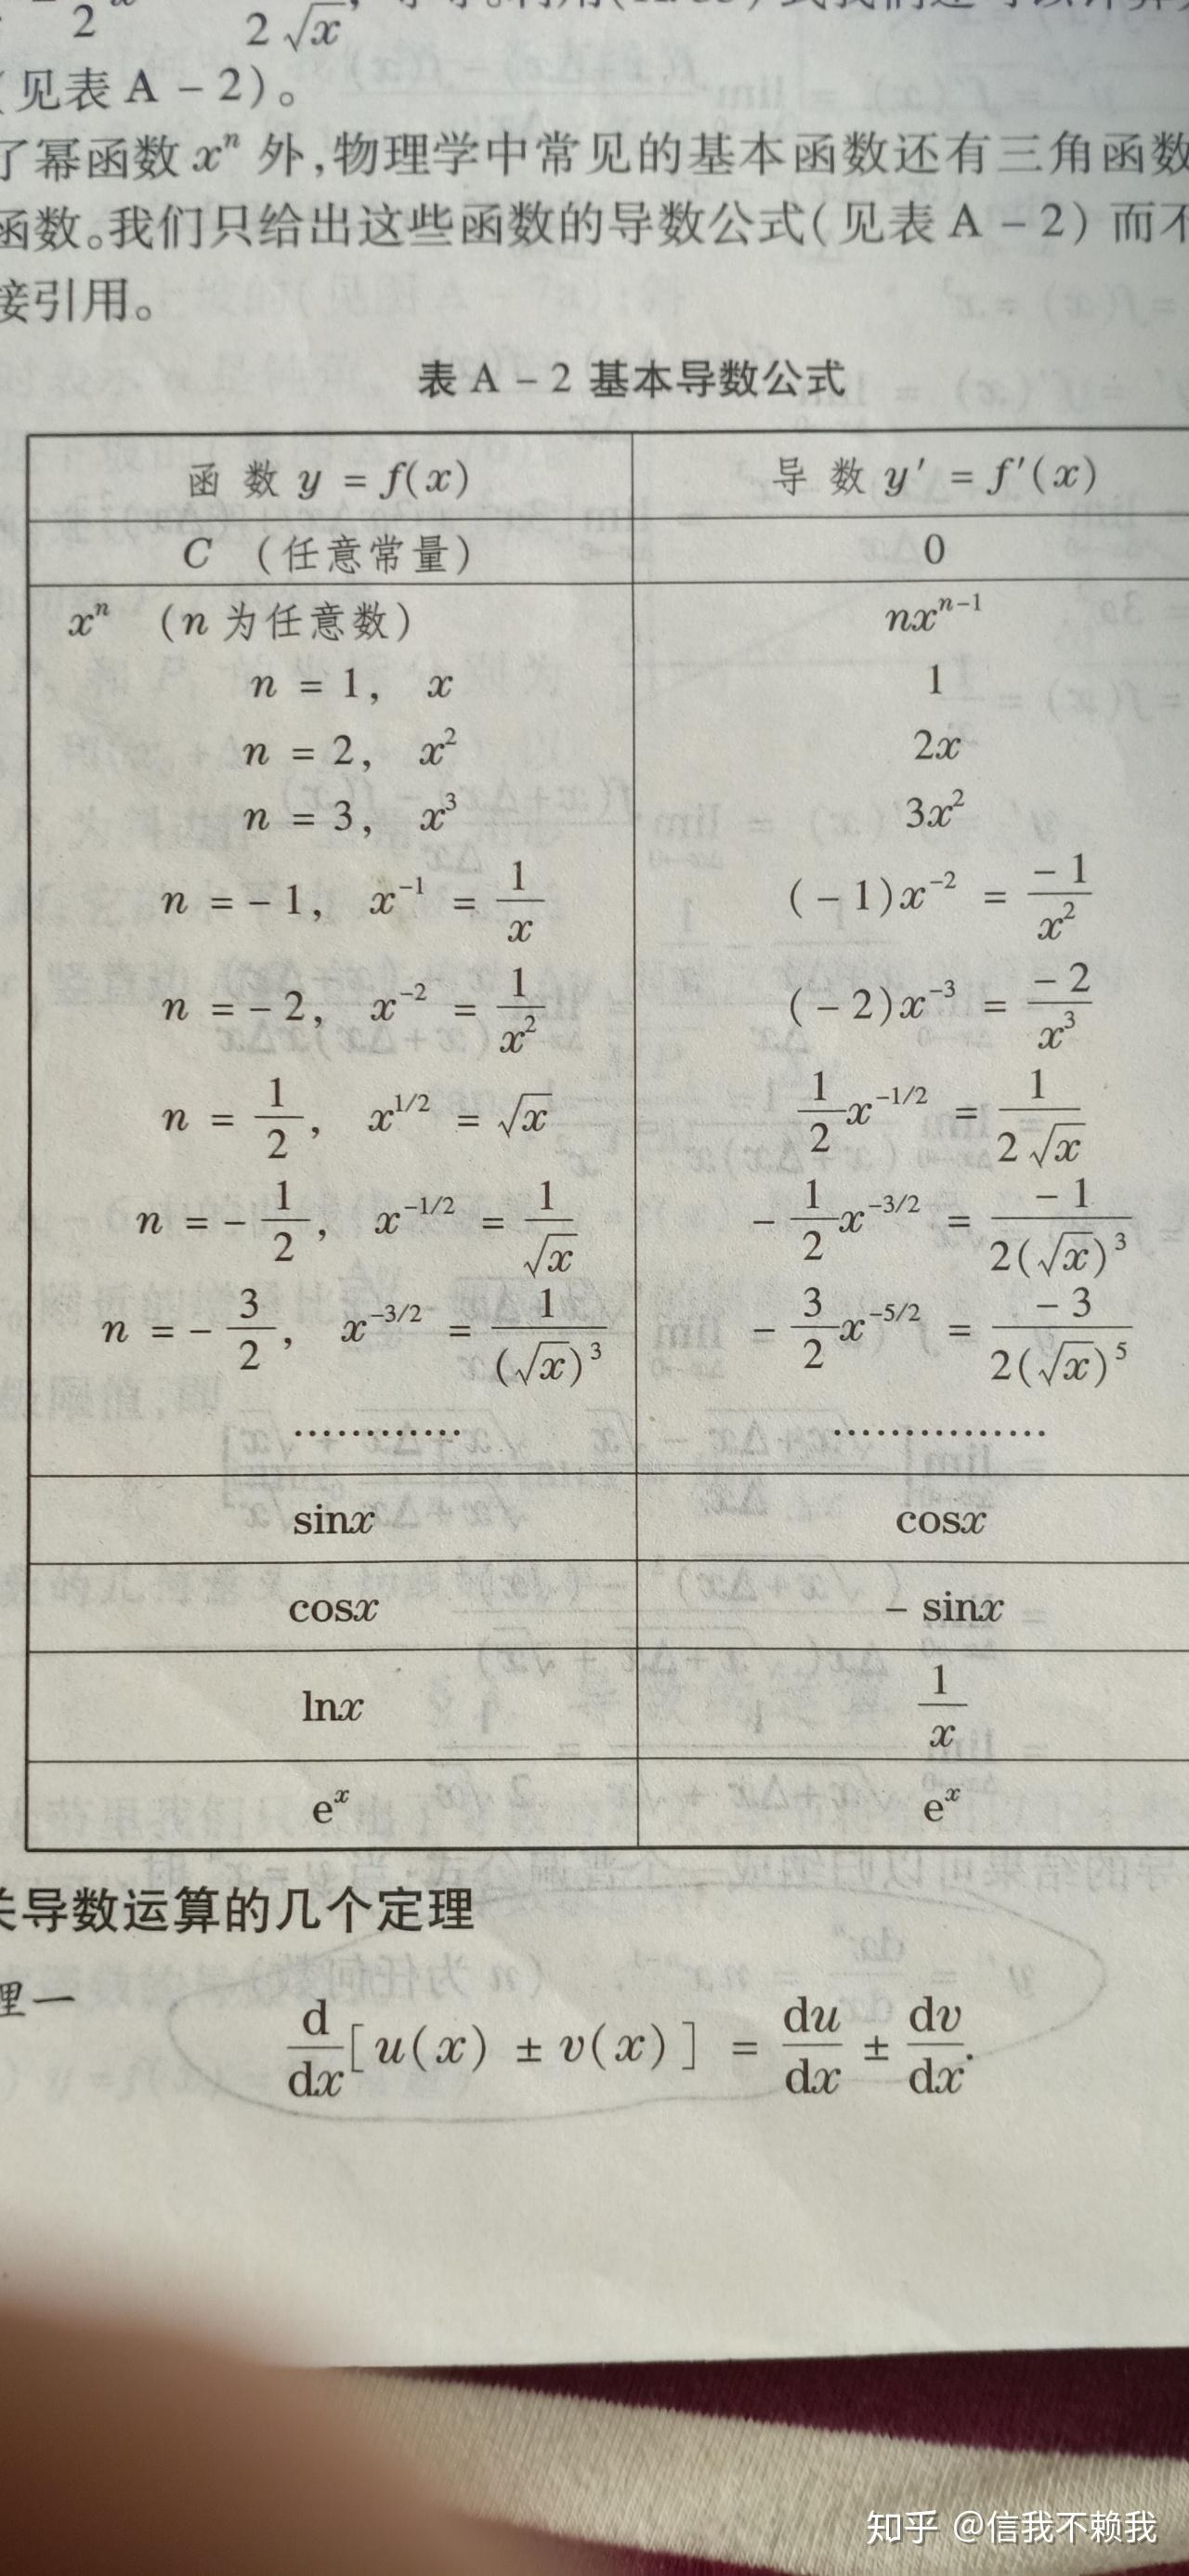 2 2√x
(见表 A－2)。
了幂函数 xⁿ 外,物理学中常见的基本函数还有三角函数
函数。我们只给出这些函数的导数公式(见表 A－2) 而不
接引用。
表 A－2 基本导数公式
函 数 y = f(x) 导 数 y′ = f′(x)
C (任意常量) 0
xⁿ (n 为任意数) nxⁿ⁻¹
n = 1, x 1
n = 2, x² 2x
n = 3, x³ 3x²
n = −1, x⁻¹ = 1/x (−1)x⁻² = −1/x²
n = −2, x⁻² = 1/x² (−2)x⁻³ = −2/x³
n = 1/2, x^{1/2} = √x 1/2 x^{−1/2} = 1/(2√x)
n = −1/2, x^{−1/2} = 1/√x −1/2 x^{−3/2} = −1/(2(√x)³)
n = −3/2, x^{−3/2} = 1/(√x)³ −3/2 x^{−5/2} = −3/(2(√x)⁵)
………… ……………
sinx cosx
cosx − sinx
lnx 1/x
eˣ eˣ
关导数运算的几个定理
理一
d/dx[u(x) ± v(x)] = du/dx ± dv/dx.
知乎 @信我不赖我